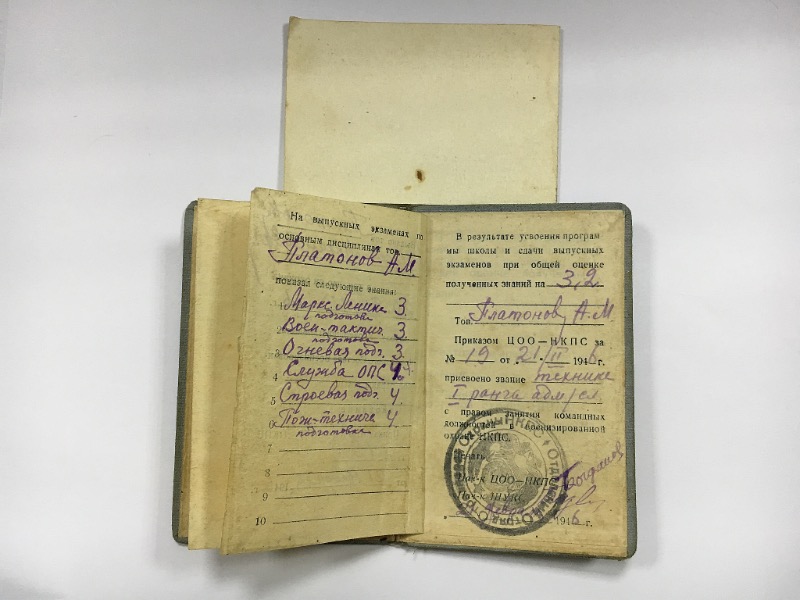 На выпускных экзаменах по
основным дисциплинам тов.
Платонов А М
показал следующие знания:
1 Маркс. Ленинс 3
подготовка
2 Воен-тактич. 3
подготовка
3 Огневая подг. 3
4 Служба ОПС 4
5 Строевая подг. 4
6 Пож-техниче 4
подготовка
7
8
9
10
В результате усвоения програм
мы школы и сдачи выпускных
экзаменов при общей оценке
полученных знаний на 3,2
Тов. Платонову А. М
Приказом ЦОО—НКПС за
№ 19 от 21 II 1946 г.
присвоено звание технике
I ранга адм/сл.
с правом занятия командных
должностей в военизированной
охране НКПС.
Печать
Нач-к ЦОО—НКПС
Нач-к
1946 г.